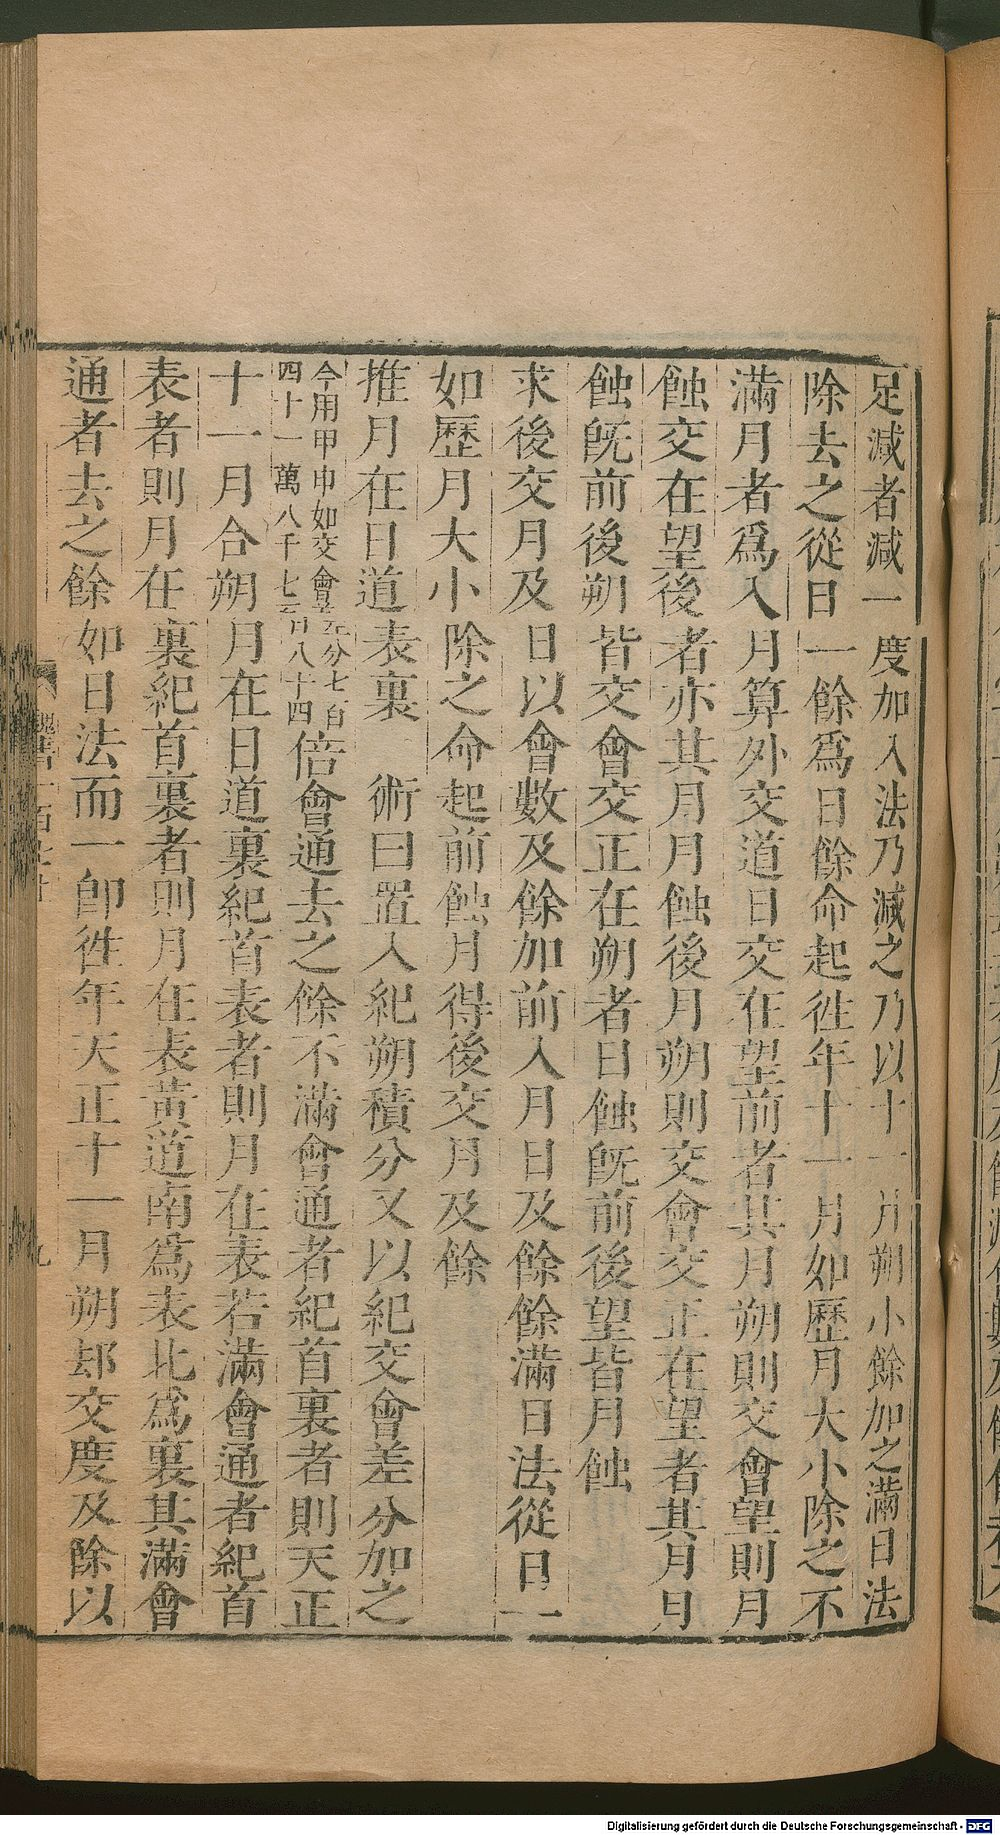 足減者減一度加入法乃減之乃以十一月朔小餘加之滿日法
除去之從日一餘爲日餘命起徃年十一月如歷月大小除之不
滿月者爲入月算外交道日交在望前者其月朔則交會望則月
蝕交在望後者亦其月月蝕後月朔則交會交正在望者其月月
蝕旣前後朔皆交會交正在朔者日蝕旣前後望皆月蝕
求後交月及日以會數及餘加前入月日及餘餘滿日法從日一
如歷月大小除之命起前蝕月得後交月及餘
推月在日道表裏 術曰置入紀朔積分又以紀交會差分加之
今用甲申如交會差分七百
四十一萬八千七百八十四
倍會通去之餘不滿會通者紀首裏者則天正
十一月合朔月在日道裏紀首表者則月在表若滿會通者紀首
表者則月在裏紀首裏者則月在表黃道南爲表北爲裏其滿會
通者去之餘如日法而一卽徃年天正十一月朔却交度及餘以
魏書一百七上
九
Digitalisierung gefördert durch die Deutsche Forschungsgemeinschaft - DFG